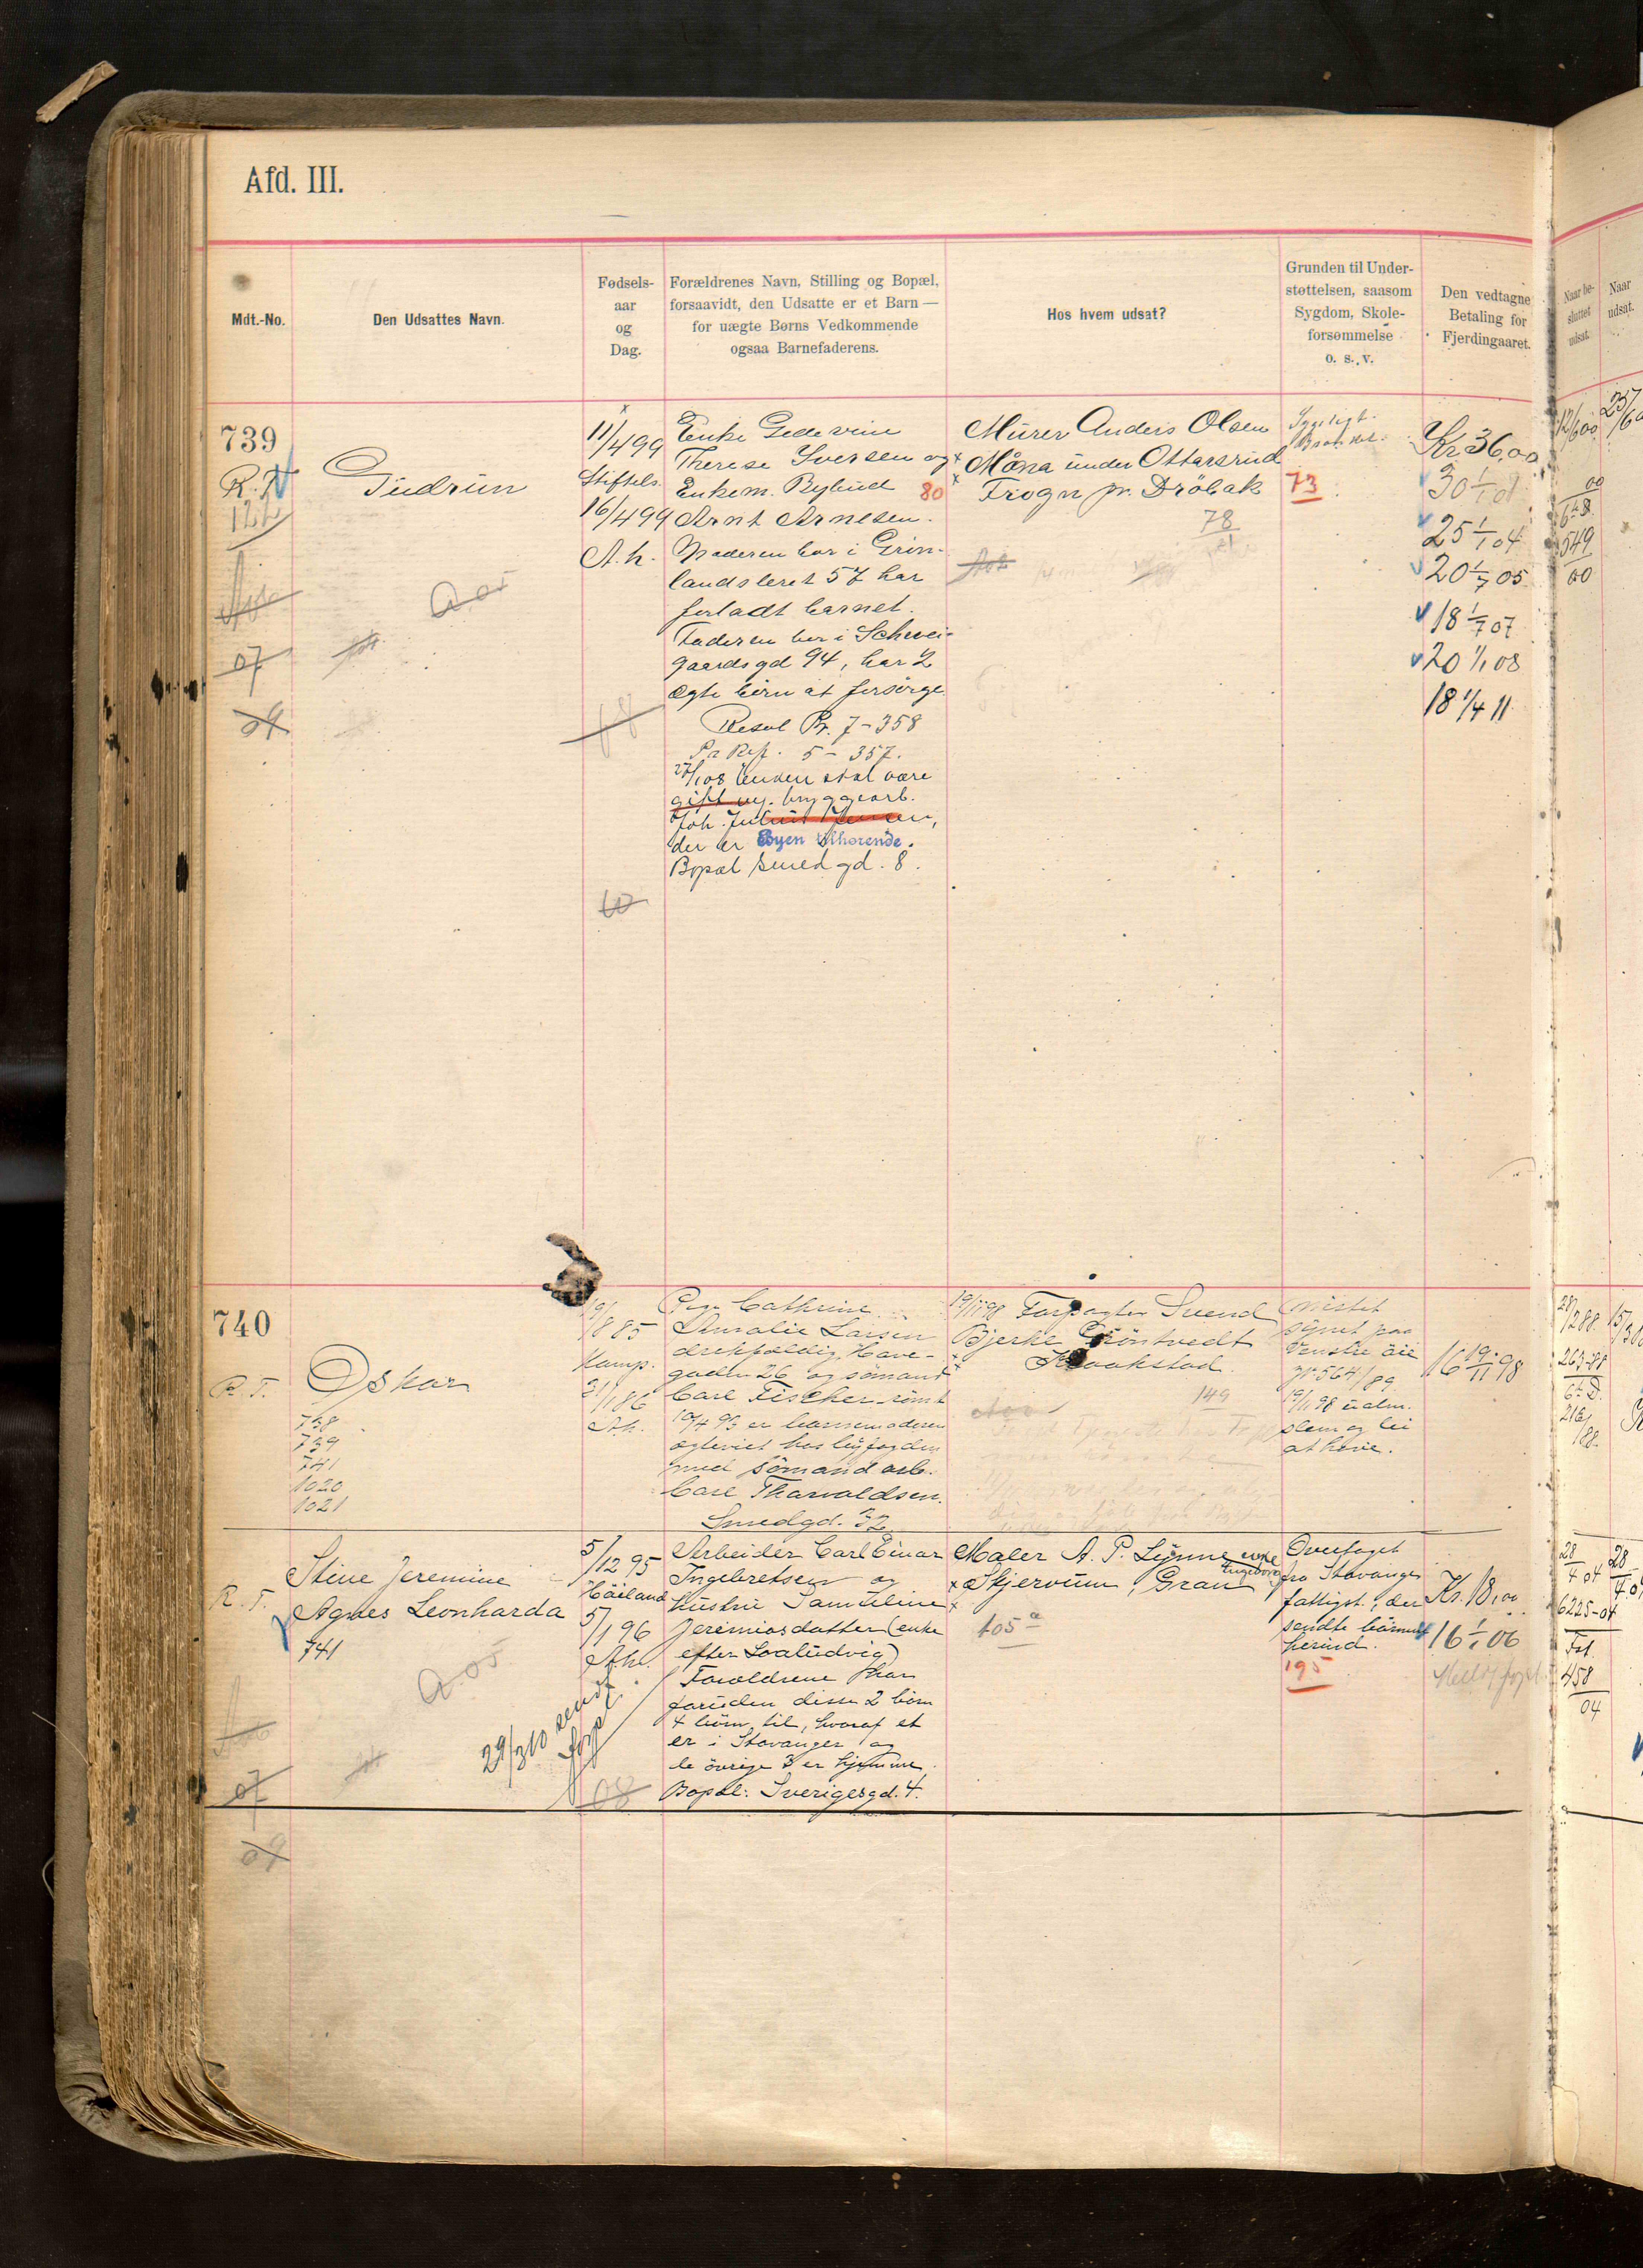 Afd. III.
Mdt.-No.
Den Udsattes Navn.
Fødsels-
aar
og
Dag.
Forældrenes Navn, Stilling og Bopæl,
forsaavidt, den Udsatte er et Barn —
for uægte Børns Vedkommende
ogsaa Barnefaderens.
Hos hvem udsat?
Grunden til Under-
støttelsen, saasom
Sygdom, Skole-
forsømmelse
o. s. v.
Den vedtagne
Betaling for
Fjerdingaaret.
Naar be-
sluttet
udsat.
Naar
udsat.
739
R. T
122
07
09
Gudrun
A 05
11/4 99
Stiftels.
16/4 99
A. h.
Enke
Therese Iversen og
Enkem. Bybud 80
Arnt Arnesen.
Moderen bor i Grøn-
landsleret 57 har
forladt barnet.
Faderen bor i Schwei-
gaardsgd 94, har 2
ægte børn at forsørge
Resol Pr. 7 - 358
Pr Rep. 5 - 357.
27/1 08 Enken skal være
gift m. bryggearb.
Joh. Julius Jensen,
der er Byen tilhørende.
Bopæl Smedgd. 8.
Murer Anders Olsen
Måna under Ottarsrud
Frogn pr. Drøbak
78
73
Kr 36,00
30 1/1 01
25 1/1 04
20 1/7 05
18 1/7 07
20 1/1 08
18 1/4 11
12/6 00
00
628
549
00
740
R. T.
738
739
741
1020
1021
Oskar
19/8 85
Kamp.
31/1 86
Ah.
Pige Cathrine
Amalie Larsen
drehfældig, Have-
gaden 26 og sømand
Carl Fischer - rømt
10/4 95 er barnemoderen
ægteviet hos byfogden
med sømand arb.
Carl Thorvaldsen.
Smedgd. 32
19/11 98 Forpagter Svend
Bjerke Grøntvedt
Kraakstad
149
mistet
synet paa
venstre øie
Jr 564/89
19/1 98 ualm.
slem og lei
at have.
16 19/11 98
28/12 88
263-88
218/88
R. T.
07
09
Stine Jeremine
Agnes Leonharda
741
A 05
29/3 10 sendt
5/12 95
Høiland
5/1 96
Ah.
08
Arbeider Carl Einar
Ingebretsen og
Hustru Samueline
Jeremiasdatter (enke
efter Loaludvig)
Forældrene har
foruden disse 2 børn
4 børn til, hvoraf et
er i Stavanger og
de øvrige 3 er hjemme.
Bopæl: Sverigesgd. 4.
Maler A. P. Lynne enke
Ingeborg
Skjervum, Gran
105 a
Overtaget
fra Stavanger
fattigst., der
sendte børnene
herind.
195
Kr. 18,00
16 1/1 06
28/4 04
6225-04
Fat.
458
04